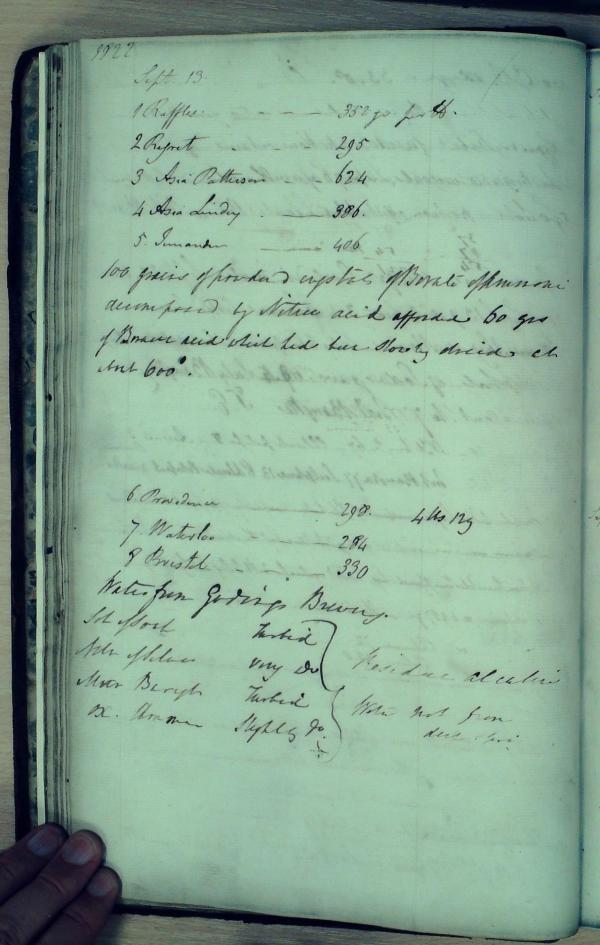 1822
Sept. 13.
1 Raffles 352 grs per lb.
2 Regret 295
3 Asia Patterson 624
4 Asia Lindsy 386.
5. 406
100 grains of powdered crystals of Borate of Ammonia
decomposed by Nitric acid afforded 60 grs
of Boracic acid which had been slowly dried at
abt 600°.
6 Providence 298. 4 lbs 12g
7. Waterloo 284
8 Bristol 330
Water from Godings Brewery.
Sol of Soap Turbid
Nitr of Silver very Do
Mur Baryt Turbid
ox. Ammon Slightly Do.
Residue alcaline
Water not from